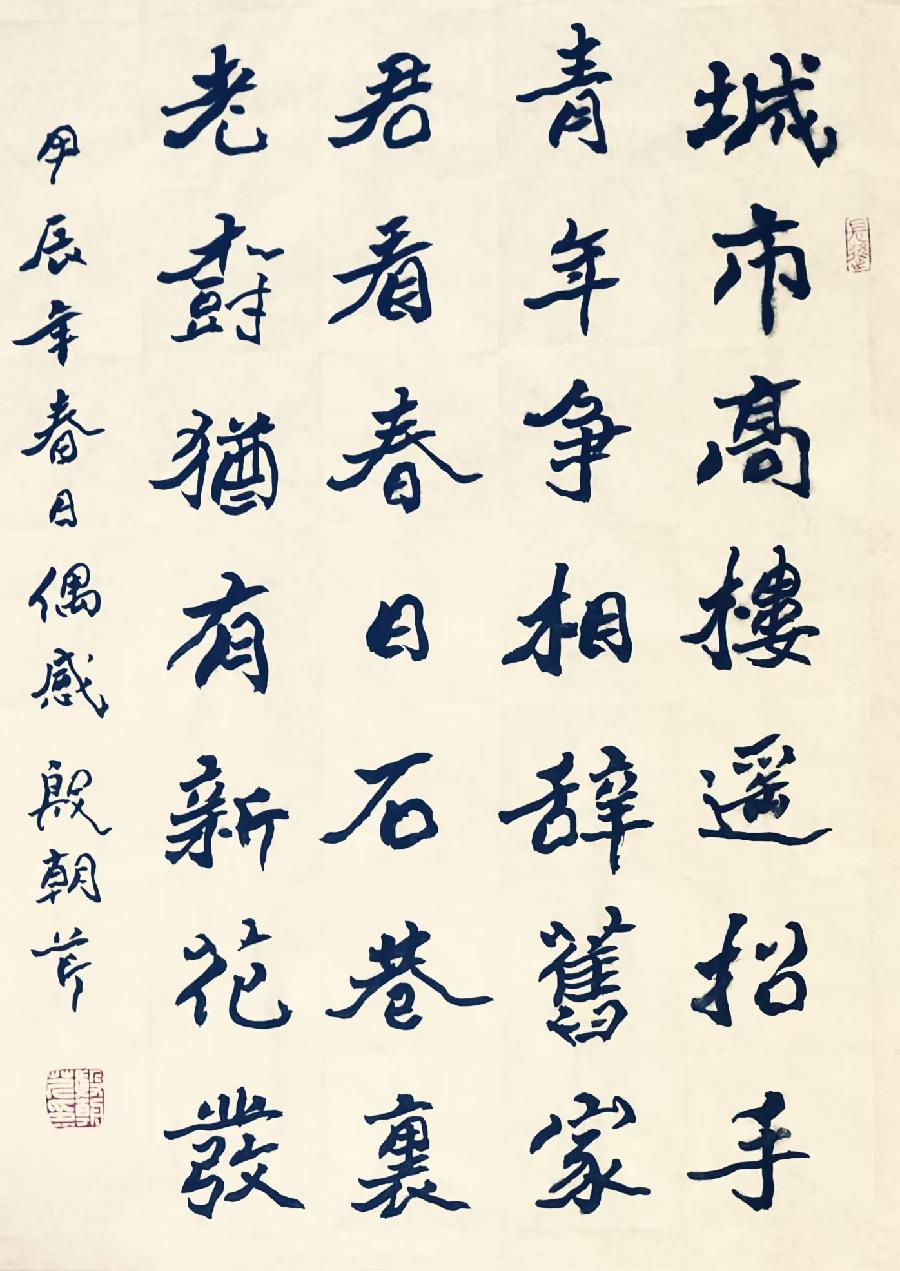 城市高樓遥招手
青年争相辞舊家
君看春日石巷裏
老樹猶有新花發
甲辰年春日偶感 殷朝芹